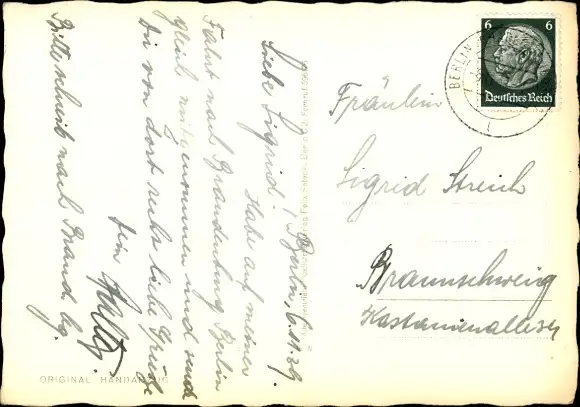 Berlin, 6.11.39.
Liebe Sigrid!
Habe auf meiner
Fahrt nach Brandenburg Berlin
gleich mitgenommen und sende
Dir von dort recht liebe Grüße
Dein
Bitte schreib nach Brand. bg.
ORIGINAL HANDABZUG
BERLIN
6 6
Deutsches Reich
Fräulein
Sigrid Streich
Braunschweig
Kastanienallee